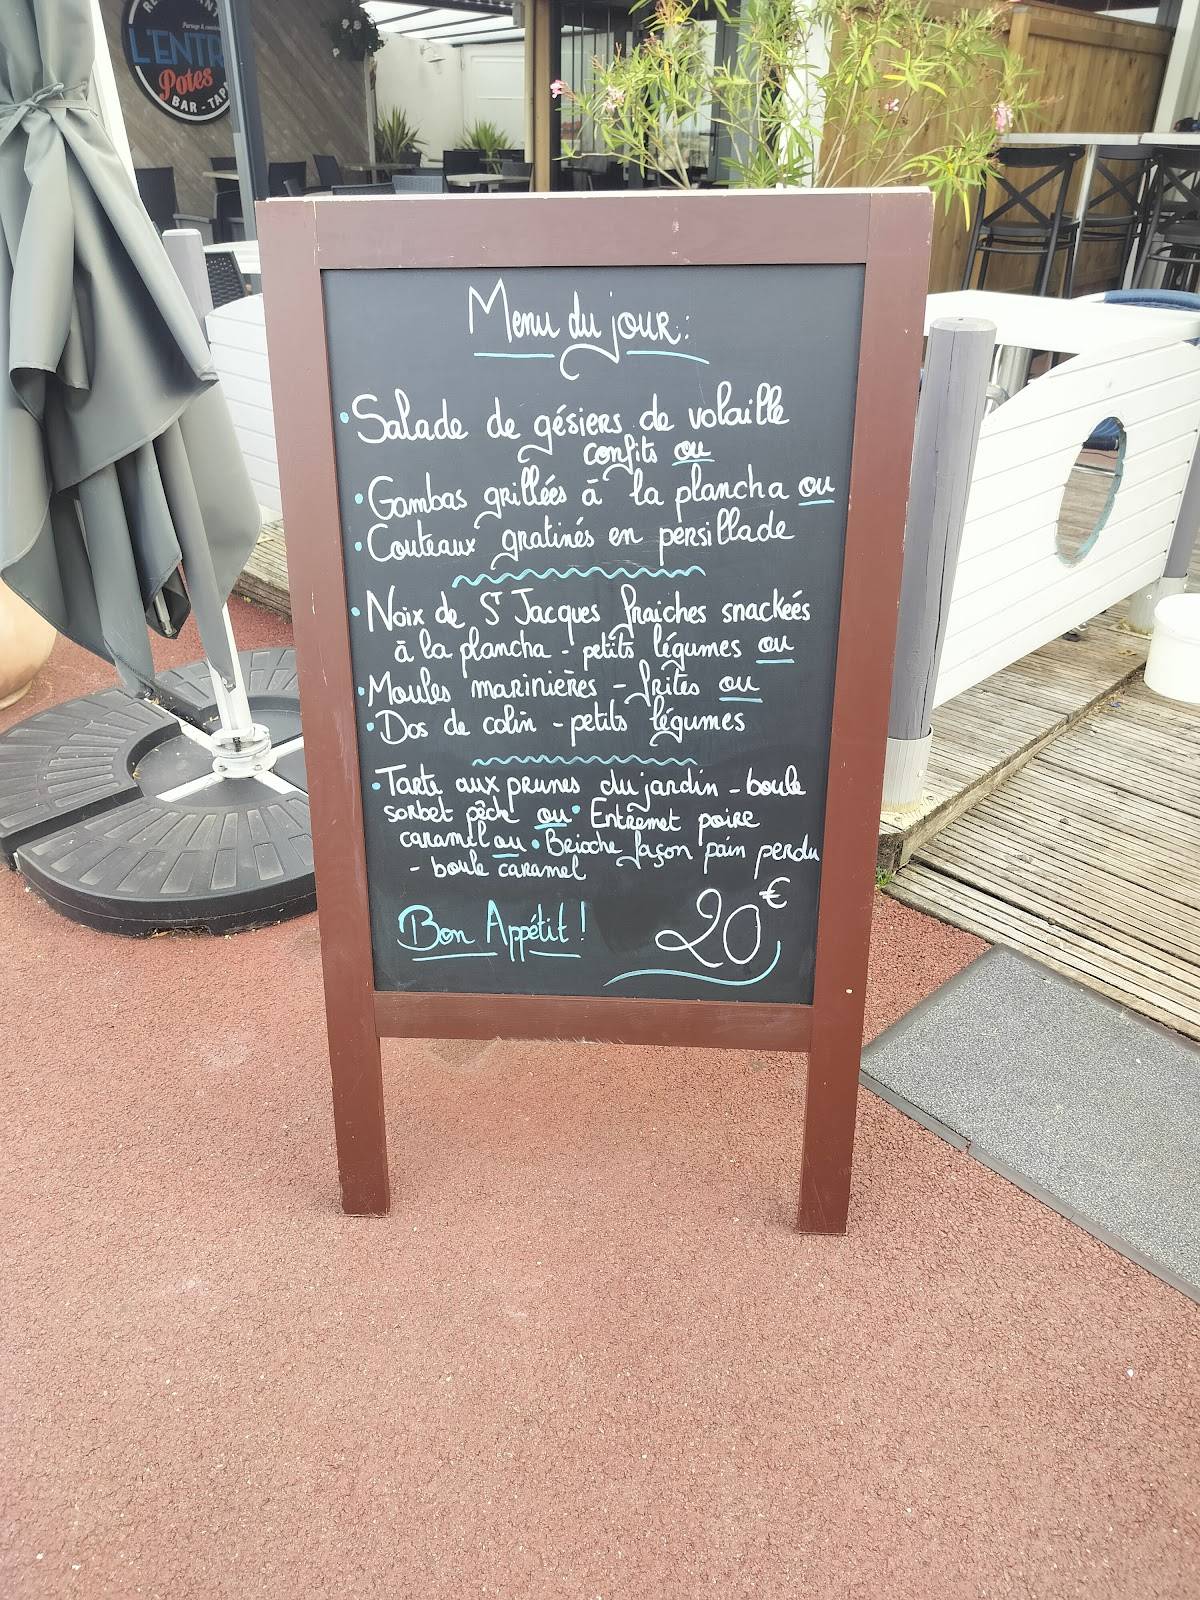 L'ENTR
Potes
BAR - TAP
Menu du jour :
• Salade de gésiers de volaille
confits ou
• Gambas grillées à la plancha ou
• Couteaux gratinés en persillade
• Noix de St Jacques fraiches snackées
à la plancha - petits légumes ou
• Moules marinières - frites ou
• Dos de colin - petits légumes
• Tarte aux prunes du jardin - boule
sorbet pêch ou • Entremet poire
caramel ou • Brioche façon pain perdu
- boule caramel
Bon Appétit !
20€